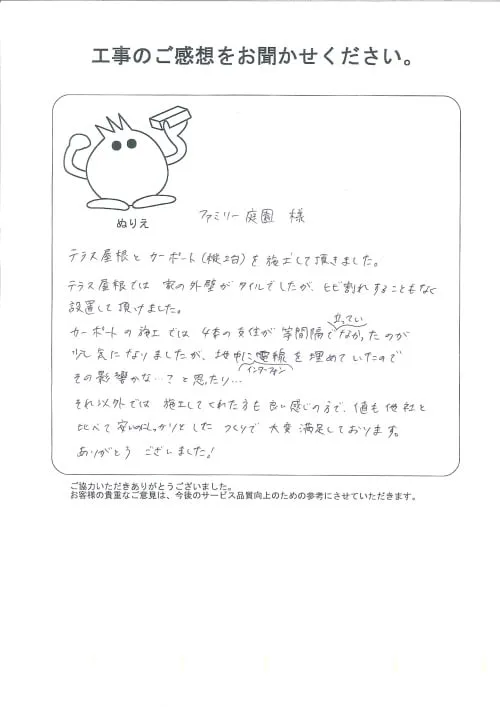 工事のご感想をお聞かせください。
ぬりえ
ファミリー庭園 様
テラス屋根と カーポート(縦2台)を 施工して頂きました。
テラス屋根では 家の外壁が タイルでしたが、ヒビ割れすることもなく
設置して頂けました。
カーポートの施工では 4本の支柱が 等間隔で立っていなかったのが
少し気になりましたが、地中に電線を埋めていたので
インターフォン
その影響かな…？と思ったり…
それ以外では 施工してくれた方も 良い感じの方で、値も他社と
比べて安いのにしっかりとした つくりで 大変満足しております。
ありがとう ございました!
ご協力いただきありがとうございました。
お客様の貴重なご意見は、今後のサービス品質向上のための参考にさせていただきます。